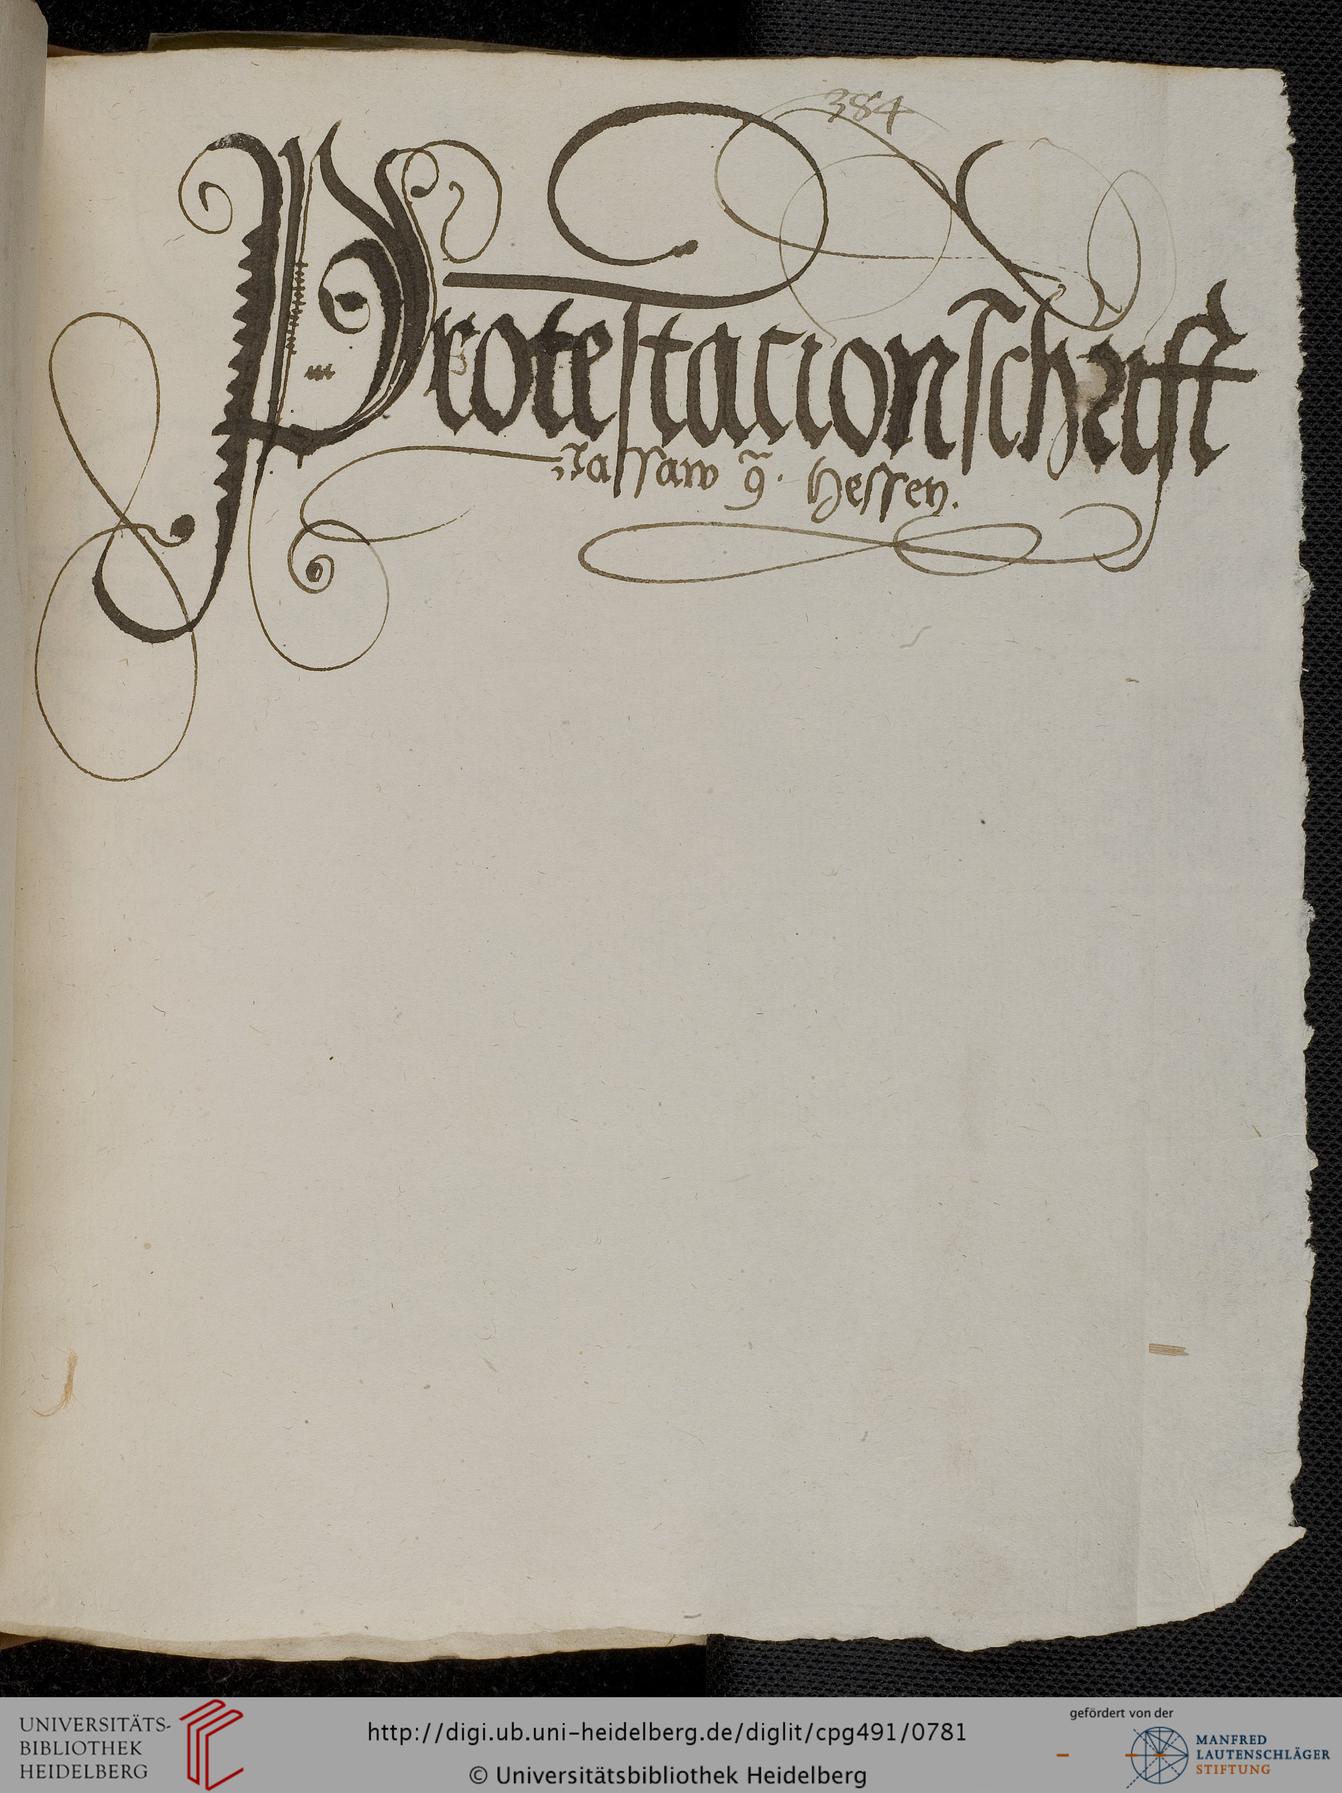 384
Protestacionschrifft
Nassaw g̃. Hessen.
UNIVERSITÄTS-
BIBLIOTHEK
HEIDELBERG
http://digi.ub.uni-heidelberg.de/diglit/cpg491/0781
© Universitätsbibliothek Heidelberg
gefördert von der
MANFRED
LAUTENSCHLÄGER
STIFTUNG